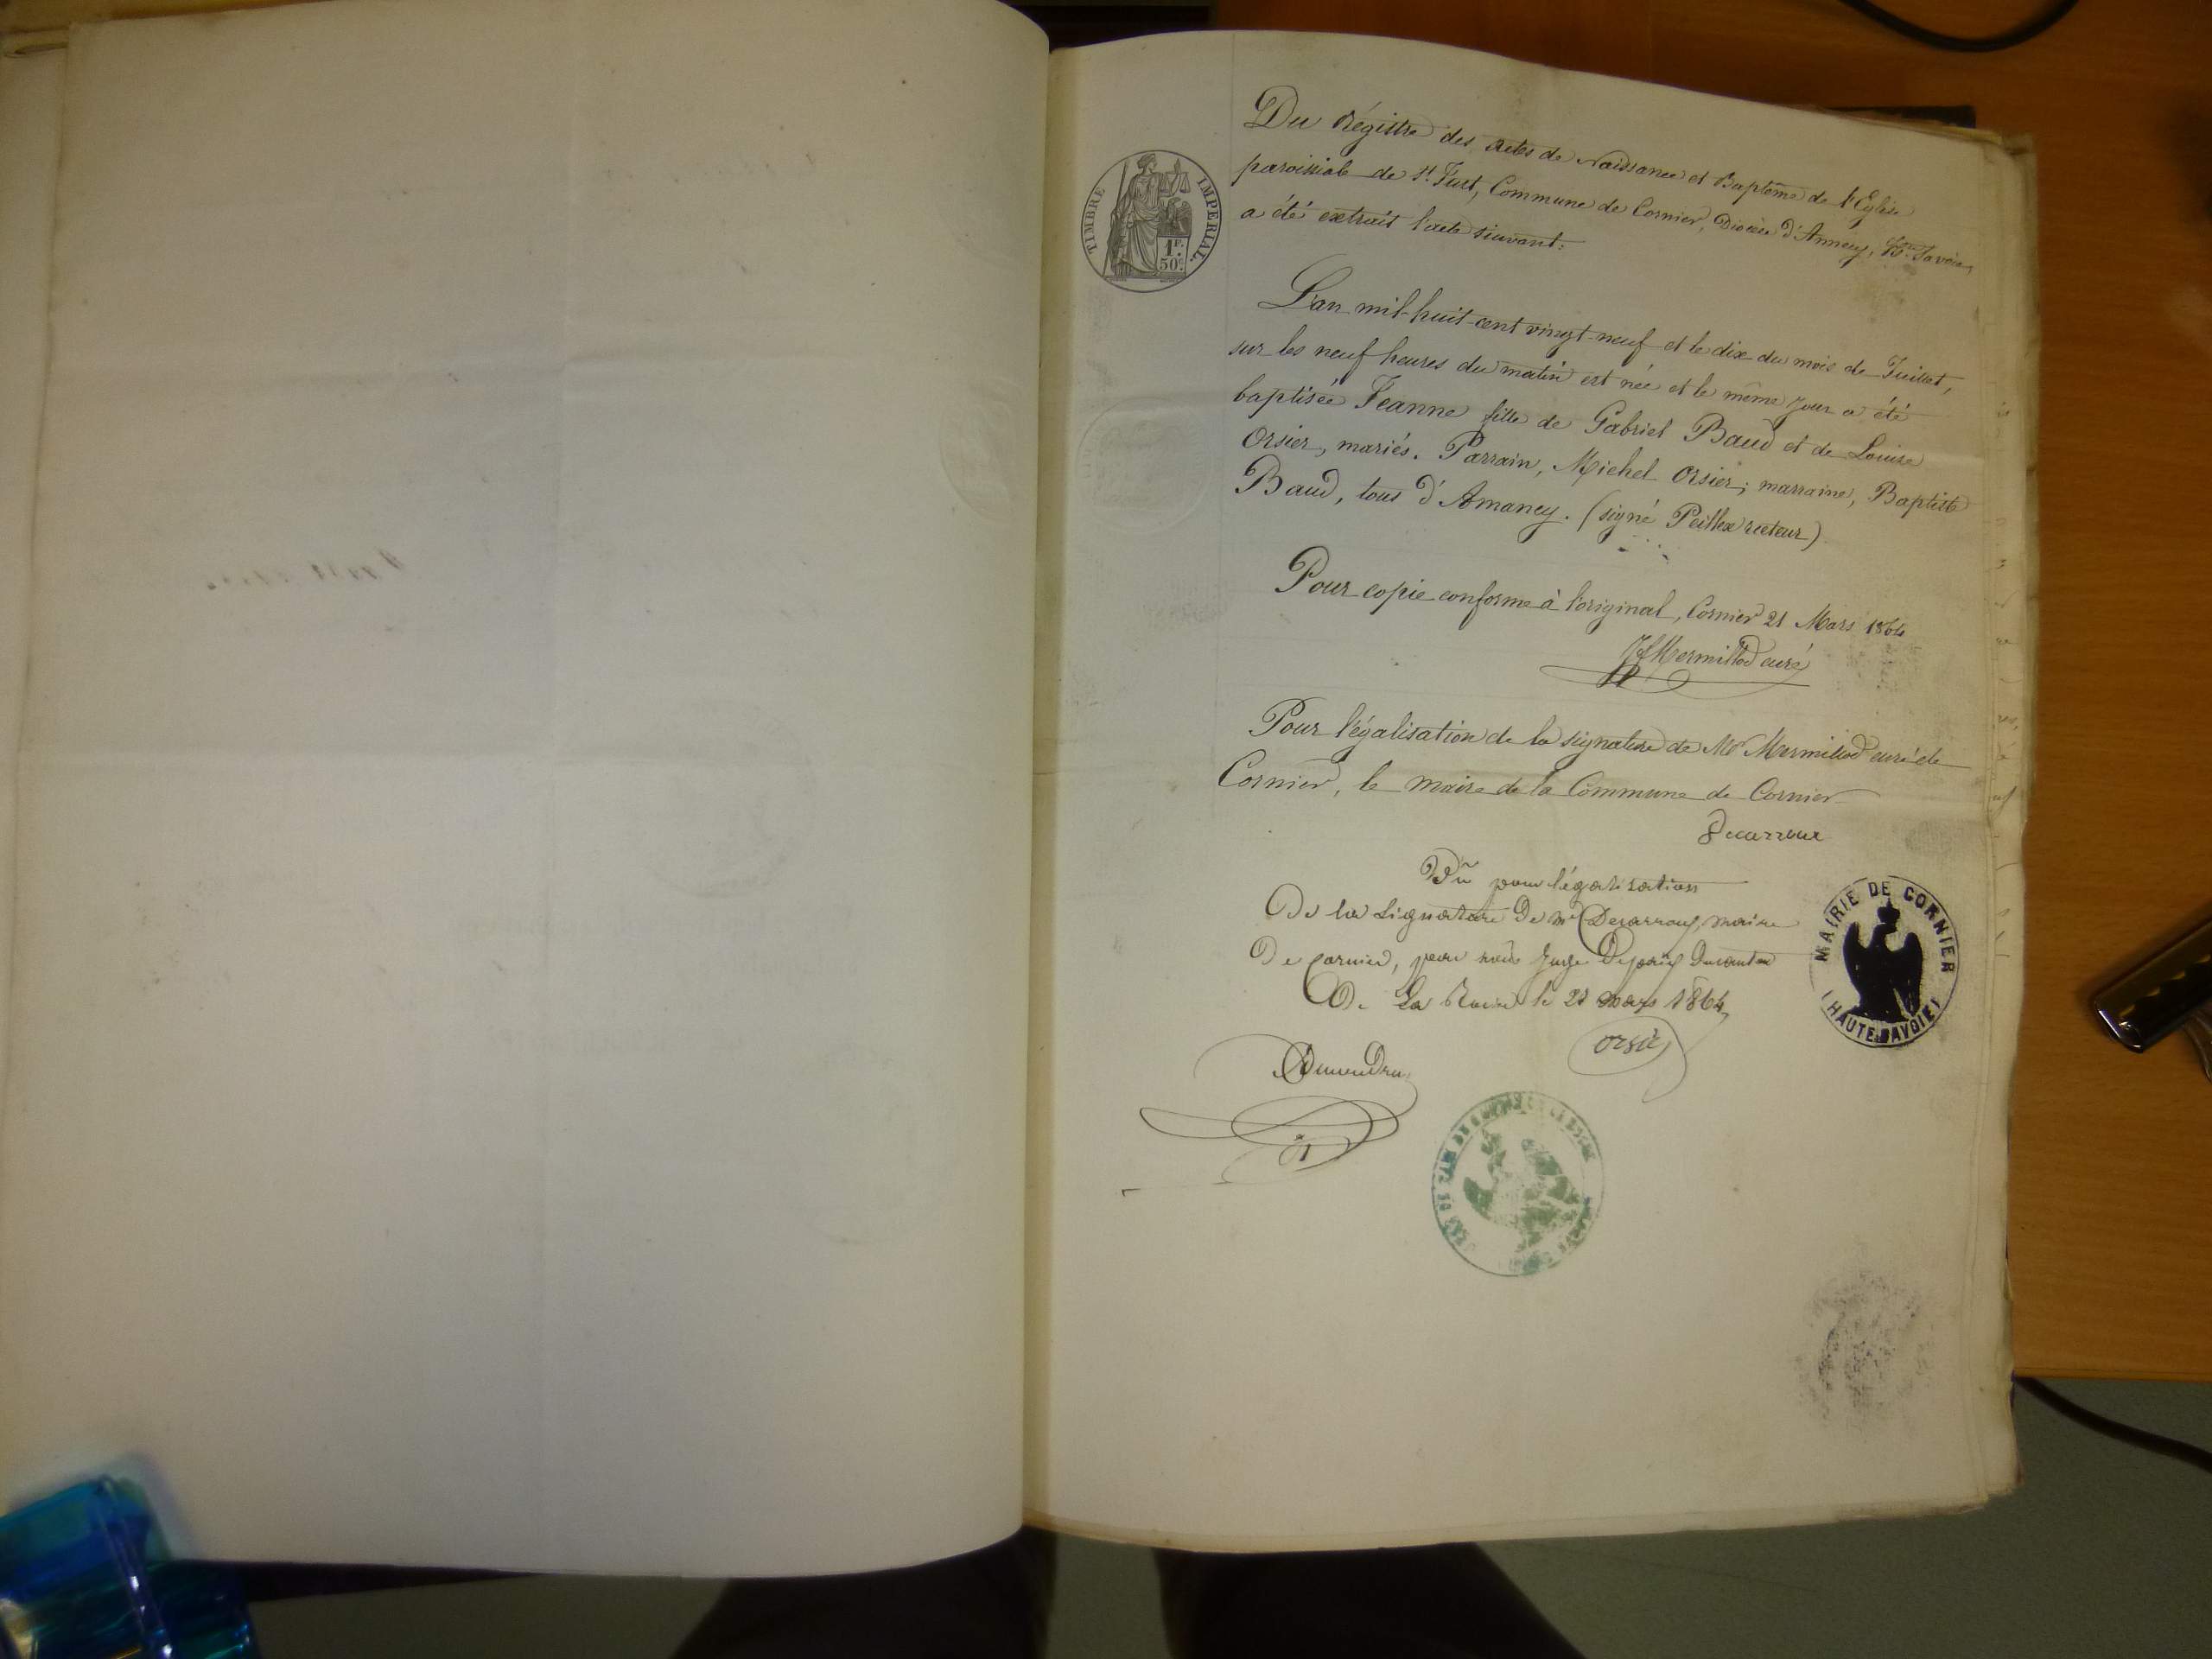 TIMBRE IMPERIAL
1F.
50c.
Du Régistre des actes de Naissance et Baptême de l'Eglise
paroissiale de St. Just, Commune de Cornier, Diocèse d'Annecy, Hte. Savoie,
a été extrait l'acte suivant:
L'an mil-huit-cent vingt-neuf et le dix du mois de Juillet,
sur les neuf heures du matin est née et le même jour a été
baptisée Jeanne fille de Gabriel Baud et de Louise
Orsier, mariés. Parrain, Michel Orsier; marraine, Baptiste
Baud, tous d'Amancy. (signé Peillex recteur)
Pour copie conforme à l'original, Cornier 21 Mars 1864
Mermillod curé
Pour légalisation de la signature de Mr Mermillod curé de
Cornier, le maire de la Commune de Cornier
Decarroux
Vu pour légalisation
De la signature De mr Decarroux, maire
De Cornier, par nous Juge De paix Du canton
De La Roche le 21 mars 1864
Orsier
MAIRIE DE CORNIER
(HAUTE SAVOIE)